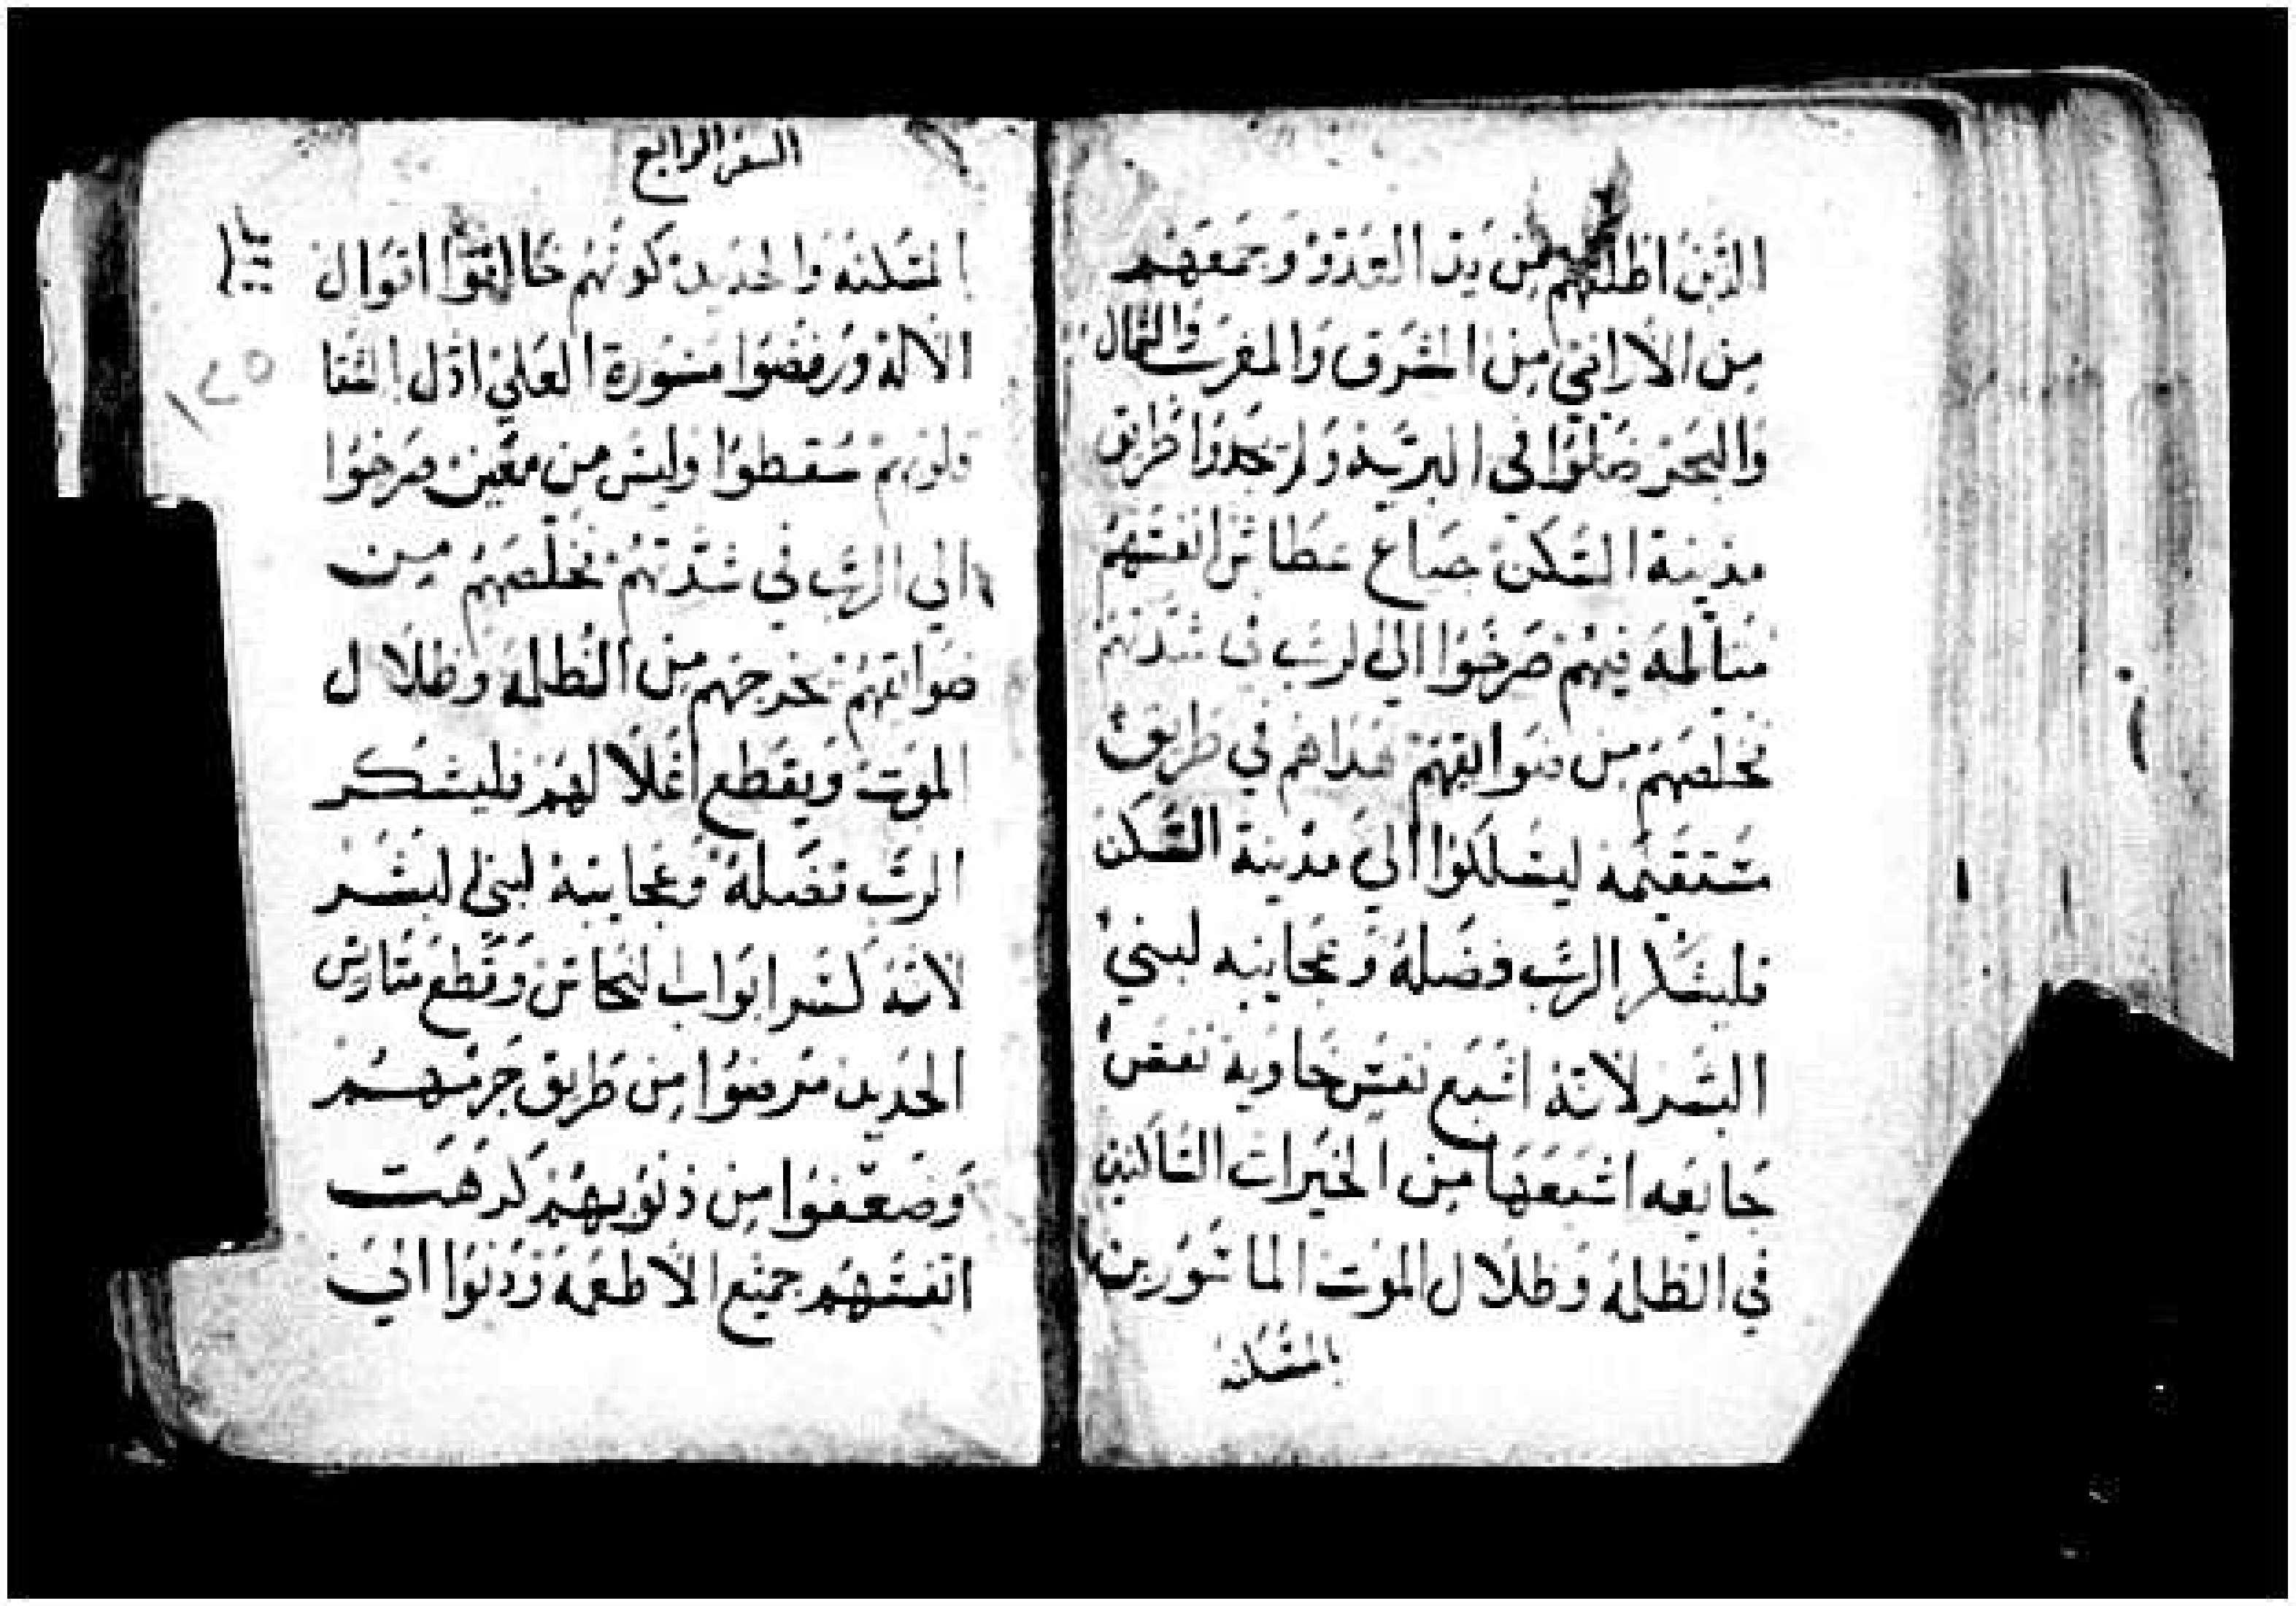 الذين اطلقهم من يد العدو وجمعهم
من الاراضي من الشرق والمغرب والشمال
والبحر ضلوا في البريه ولم يجدوا طريق
مدينة السكن جياع عطاش انفسهم
متالمه فيهم صرخوا الي الرب في شدتهم
تخلصهم من ضوايقهم هداهم في طريق
مستقيمه ليسلكوا الي مدينة السكن
فليشكر الرب فضله وعجايبه لبني
البشر لانه اشبع نفس خاويه نفس
جايعه اشبعها من الخيرات الساكنين
في الظلمه وظلال الموت الماسورين
المسكنه
السفر الرابع
المسكنه والحديد كونهم خالفوا اقوال
الاله ورفضوا مشورة العلي اذل الشقا
قلوبهم سقطوا وليس من معين صرخوا
الي الرب في شدتهم تخلصهم من
ضوايقهم يخرجهم من الظلمه وظلال
الموت ويقطع اغلالهم فليشكر
الرب تفضله وعجايبه لبني البشر
لانه كسر ابواب النحاس وقطع متاريس
الحديد مرضوا من طريق جرمهم
وضعفوا من ذنوبهم كرهت
انفسهم جميع الاطعمه ودنوا الي
١٢٥